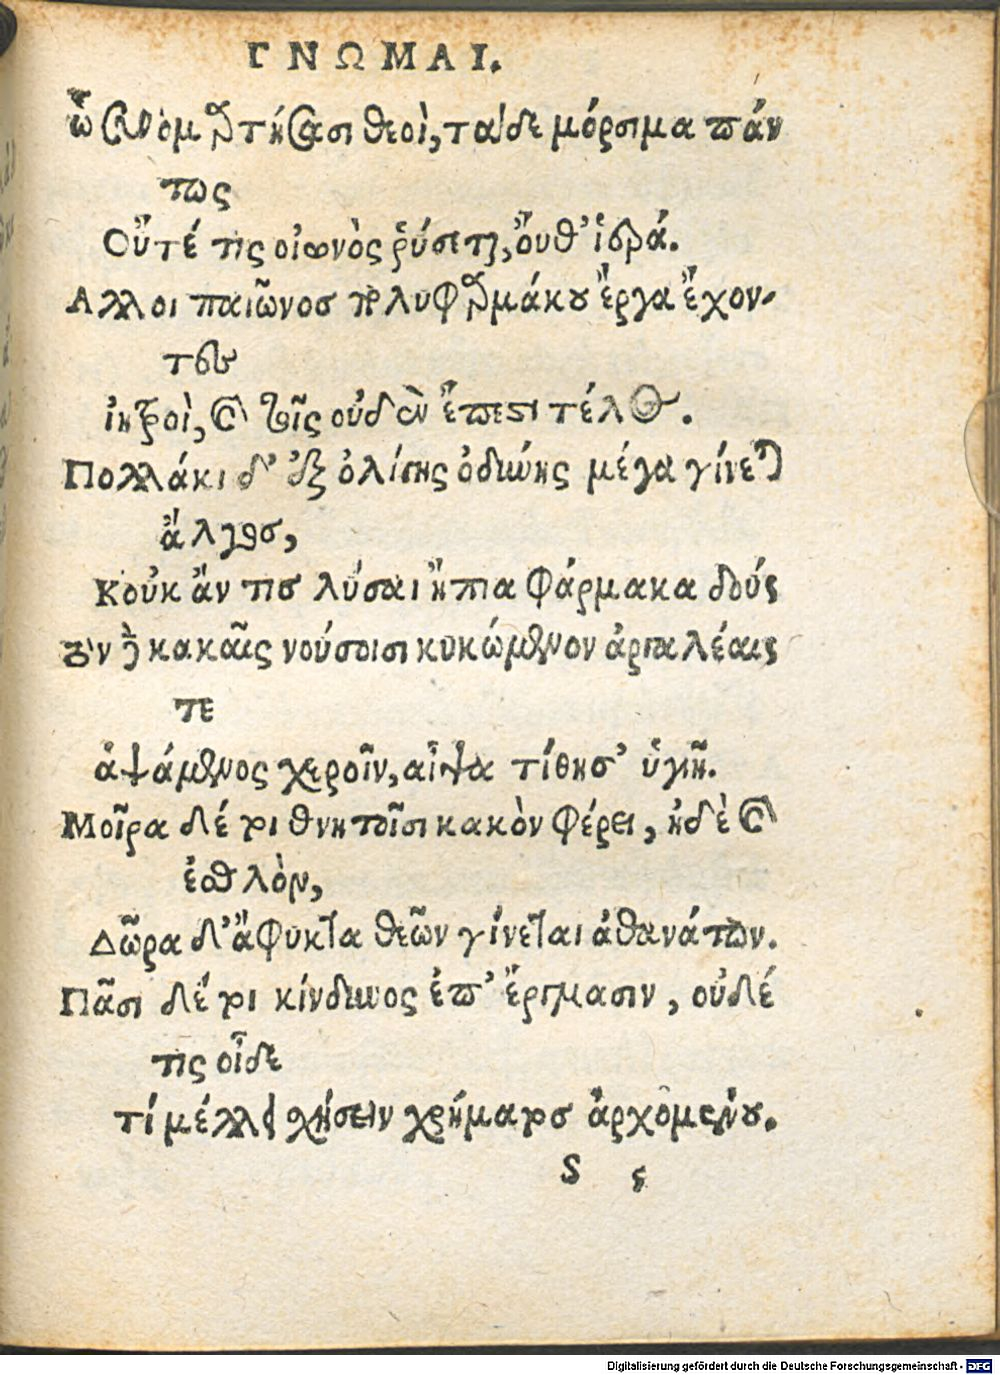 ΓΝΩΜΑΙ.
ᾧ συνομαρτήσασι θεοὶ, τὰ δὲ μόρσιμα πάν
τως
Οὔτέ τις οἰωνὸς ῥύσεται, ὄυθ' ἱερά.
Αλλοι παιῶνοσ πολυφαρμάκου ἔργα ἔχον-
τες
ἰητροὶ, καὶ τοῖς οὐδὲν ἔπεστι τέλος.
Πολλάκι δ' ἐξ ὀλίγης ὀδύνης μέγα γίνεται
ἄλγοσ,
Κοὐκ ἄν τισ λύσαι ἤπια φάρμακα δούς
τὸν δὲ κακαῖς νούσοισι κυκώμενον ἀργαλέαις
τε
ἁψάμενος χεροῖν, αἶψα τίθησ' ὑγιῆ.
Μοῖρα δέ τοι θνητοῖσι κακὸν φέρει, ἠδὲ καὶ
ἐσθλὸν,
Δῶρα δ' ἄφυκτα θεῶν γίνεται ἀθανάτων.
Πᾶσι δέ τοι κίνδυνος ἐπ' ἔργμασιν, οὐδέ
τις οἶδε
τί μέλλει σχήσειν χρήματοσ ἀρχομένου.
S ς
Digitalisierung gefördert durch die Deutsche Forschungsgemeinschaft - DFG